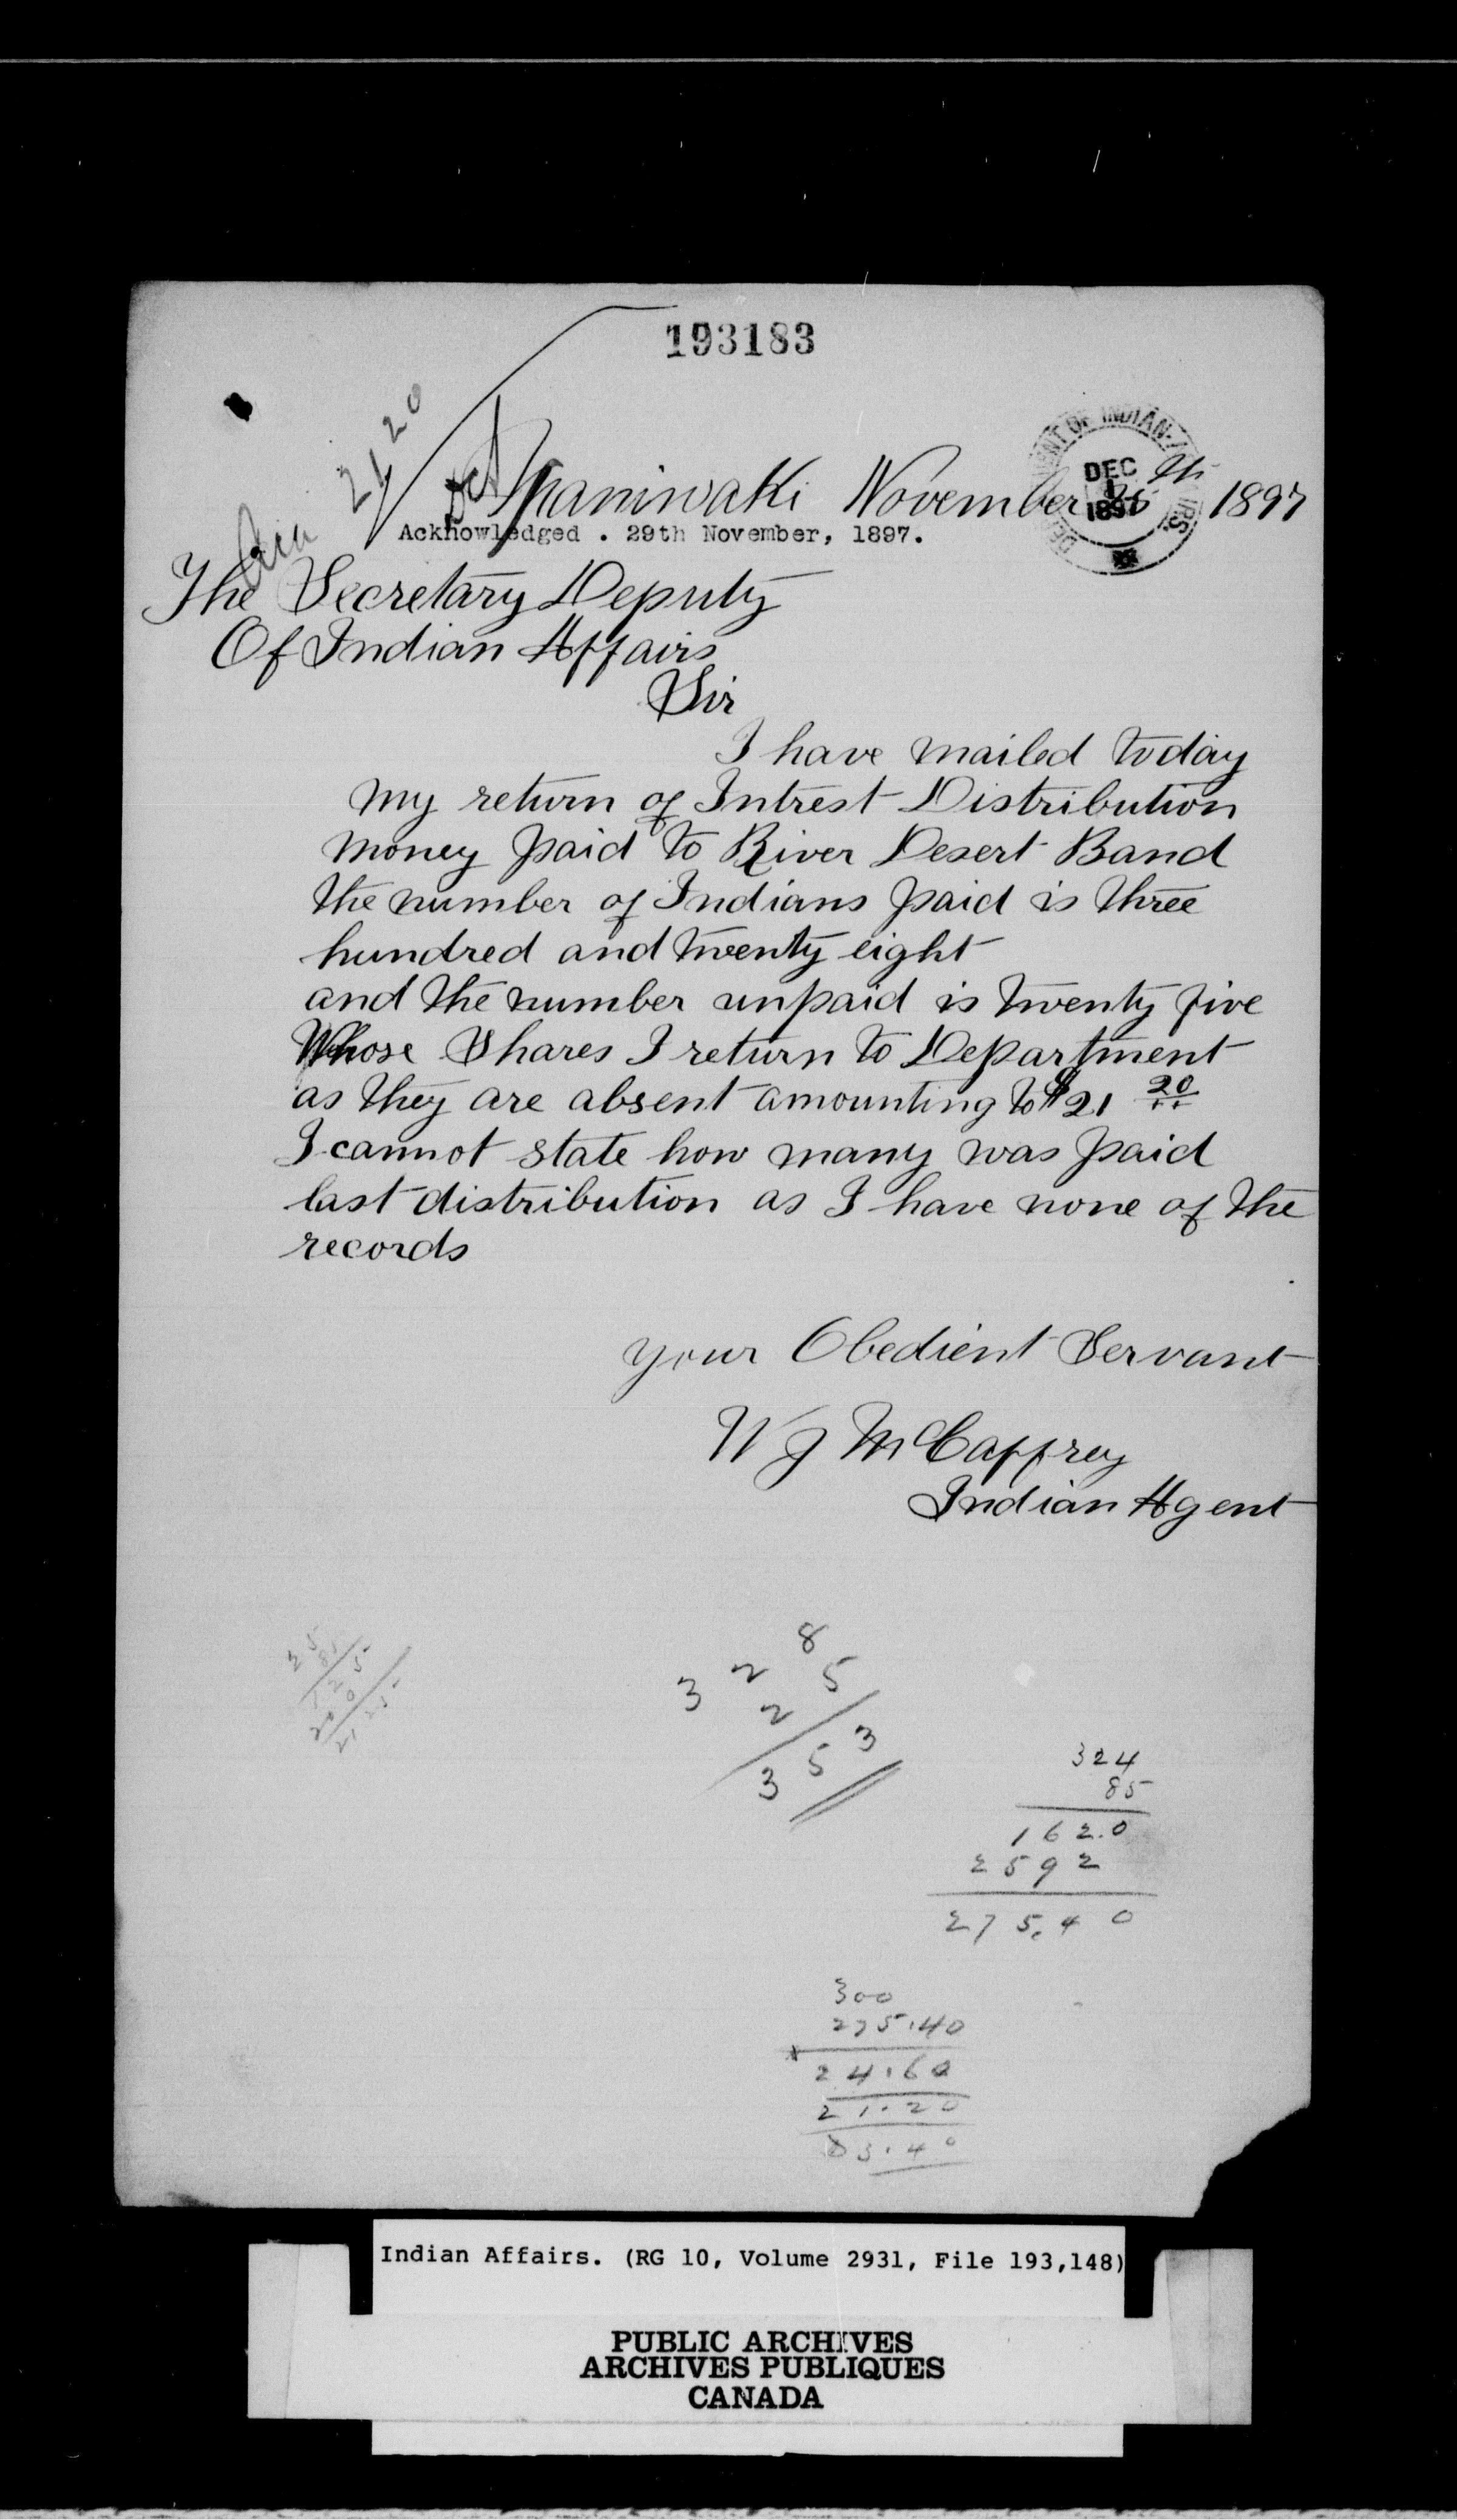 193183
21 20
Maniwaki November th 1897
DEPARTMENT OF INDIAN AFFAIRS
DEC
1
1897
Acknowledged . 29th November, 1897.
The Secretary Deputy
Of Indian Affairs
Sir
I have mailed today
my return of Intrest Distribution
money paid to River Desert Band
the number of Indians paid is three
hundred and twenty eight
and the number unpaid is twenty five
Whose Shares I return to Department
as they are absent amounting to $21 20
I cannot state how many was paid
last distribution as I have none of the
records
your Obedient Servant
W J McCaffrey
Indian Agent
25
85
125
200
2125
328
25
353
324
85
162.0
2592
275.40
300
275.40
24.60
21.20
3.40
Indian Affairs. (RG 10, Volume 2931, File 193,148)
PUBLIC ARCHIVES
ARCHIVES PUBLIQUES
CANADA